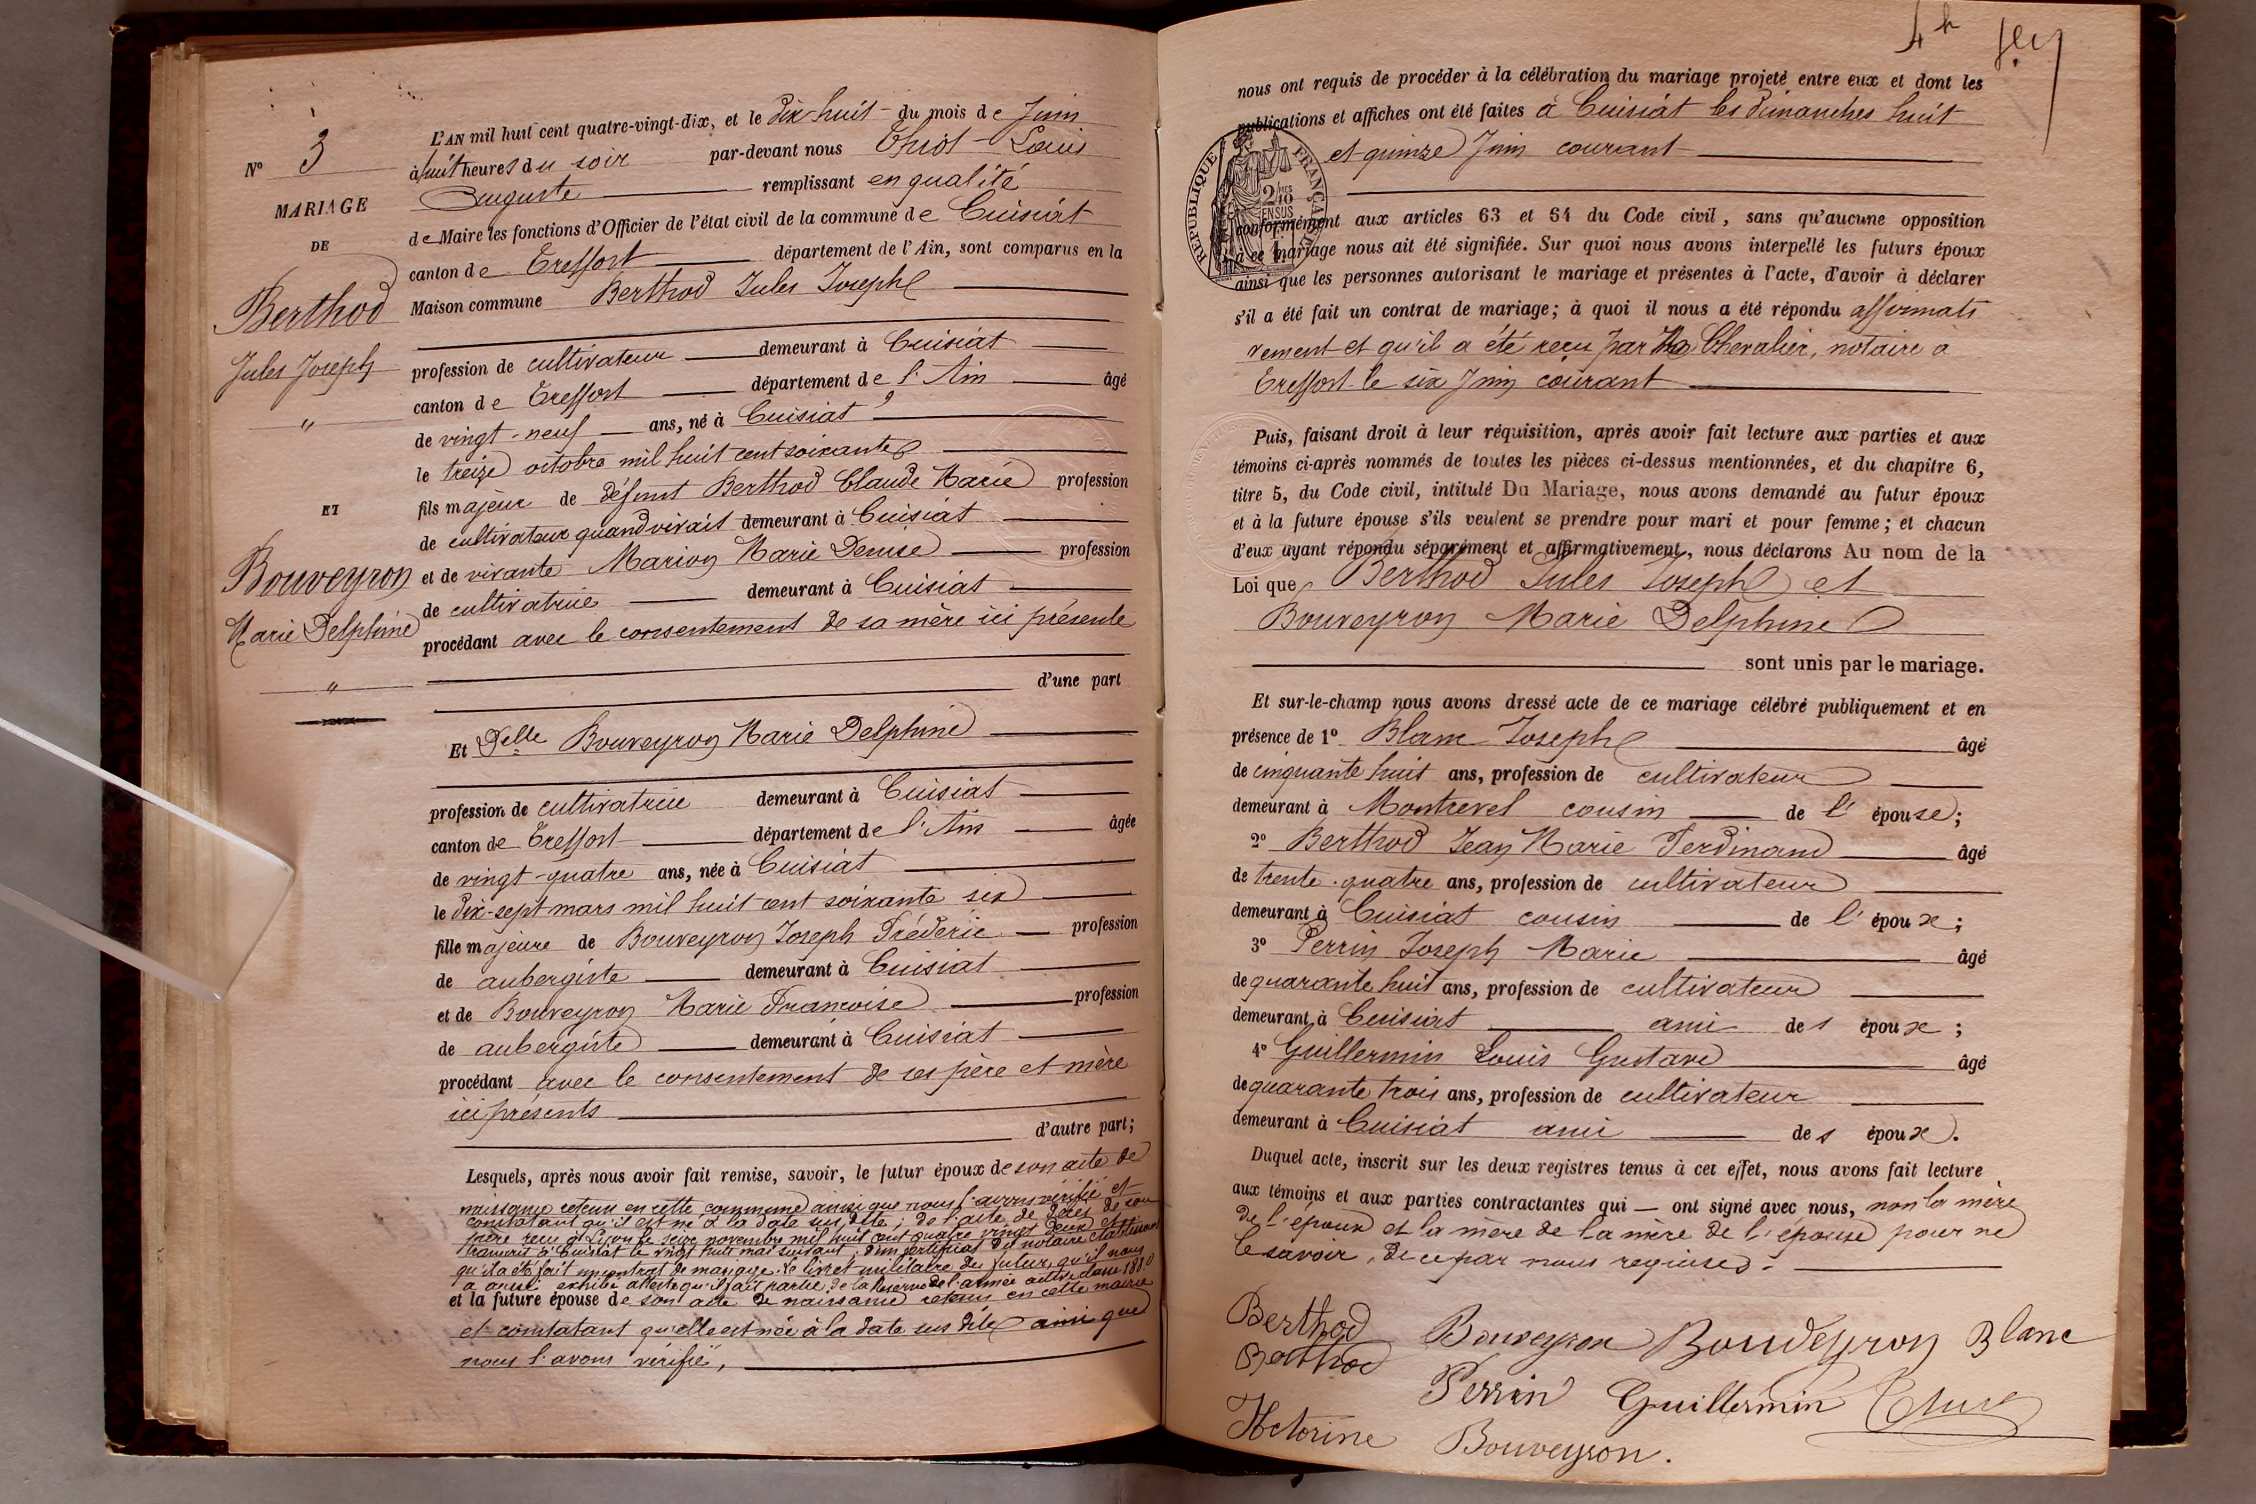 N° 3
MARIAGE
DE
Berthod
Jules Joseph
"
ET
Bouveyron
Marie Delphine
"
L'AN mil huit cent quatre-vingt-dix, et le dix-huit du mois de Juin
à huit heures du soir par-devant nous Thiot Louis
Auguste remplissant en qualité
de Maire les fonctions d'Officier de l'état civil de la commune de Cuisiat
canton de Treffort département de l'Ain, sont comparus en la
Maison commune Berthod Jules Joseph
profession de cultivateur demeurant à Cuisiat
canton de Treffort département de l'Ain âgé
de vingt-neuf ans, né à Cuisiat
le treize octobre mil huit cent soixante
fils majeur de défunt Berthod Claude Marie profession
de cultivateur quand vivait demeurant à Cuisiat
et de vivante Marion Marie Denise profession
de cultivatrice demeurant à Cuisiat
procédant avec le consentement de sa mère ici présente
d'une part
Et Delle Bouveyron Marie Delphine
profession de cultivatrice demeurant à Cuisiat
canton de Treffort département de l'Ain âgée
de vingt-quatre ans, née à Cuisiat
le dix-sept mars mil huit cent soixante six
fille majeure de Bouveyron Joseph Frédéric profession
de aubergiste demeurant à Cuisiat
et de Bouveyron Marie Francoise profession
de aubergiste demeurant à Cuisiat
procédant avec le consentement de ses père et mère
ici présents
d'autre part;
Lesquels, après nous avoir fait remise, savoir, le futur époux de son acte de
naissance retenu en cette commune ainsi que nous l'avons vérifié et
constatant qu'il est né à la date sus dite; de l'acte de décès de son
père reçu à Lyon le seize novembre mil huit cent quatre vingt deux et
transcrit à Cuisiat le vingt huit mai suivant; d'un certificat du notaire
qu'il a été fait un contrat de mariage. Le livret militaire du futur qu'il nous
a aussi exhibé atteste qu'il fait partie de la Reserve de l'armée active classe 1880
et la future épouse de son acte de naissance retenu en cette mairie
et constatant qu'elle est née à la date sus dite ainsi que
nous l'avons vérifié,
4h
nous ont requis de procéder à la célébration du mariage projeté entre eux et dont les
publications et affiches ont été faites à Cuisiat les dimanches huit
et quinze Juin courant
REPUBLIQUE FRANÇAISE
2/10 EN SUS
conformément aux articles 63 et 64 du Code civil, sans qu'aucune opposition
à ce mariage nous ait été signifiée. Sur quoi nous avons interpellé les futurs époux
ainsi que les personnes autorisant le mariage et présentes à l'acte, d'avoir à déclarer
s'il a été fait un contrat de mariage; à quoi il nous a été répondu affirmati
vement et qu'il a été reçu par Me Chevalier, notaire à
Treffort le six Juin courant
Puis, faisant droit à leur réquisition, après avoir fait lecture aux parties et aux
témoins ci-après nommés de toutes les pièces ci-dessus mentionnées, et du chapitre 6,
titre 5, du Code civil, intitulé Du Mariage, nous avons demandé au futur époux
et à la future épouse s'ils veulent se prendre pour mari et pour femme; et chacun
d'eux ayant répondu séparément et affirmativement, nous déclarons Au nom de la
Loi que Berthod Jules Joseph et
Bouveyron Marie Delphine
sont unis par le mariage.
Et sur-le-champ nous avons dressé acte de ce mariage célébré publiquement et en
présence de 1° Blanc Joseph âgé
de cinquante huit ans, profession de cultivateur
demeurant à Montrevel cousin de l'épouse;
2° Berthod Jean Marie Ferdinand âgé
de trente-quatre ans, profession de cultivateur
demeurant à Cuisiat cousin de l'époux;
3° Perrin Joseph Marie âgé
de quarante huit ans, profession de cultivateur
demeurant à Cuisiat ami des époux;
4° Guillermin Louis Gustave âgé
de quarante trois ans, profession de cultivateur
demeurant à Cuisiat ami des époux.
Duquel acte, inscrit sur les deux registres tenus à cet effet, nous avons fait lecture
aux témoins et aux parties contractantes qui — ont signé avec nous, non la mère
de l'époux et la mère de la mère de l'épouse pour ne
le savoir, de ce par nous requises.
Berthod Bouveyron Bouveyron Blanc
Berthod Perrin Guillermin
Bouveyron.